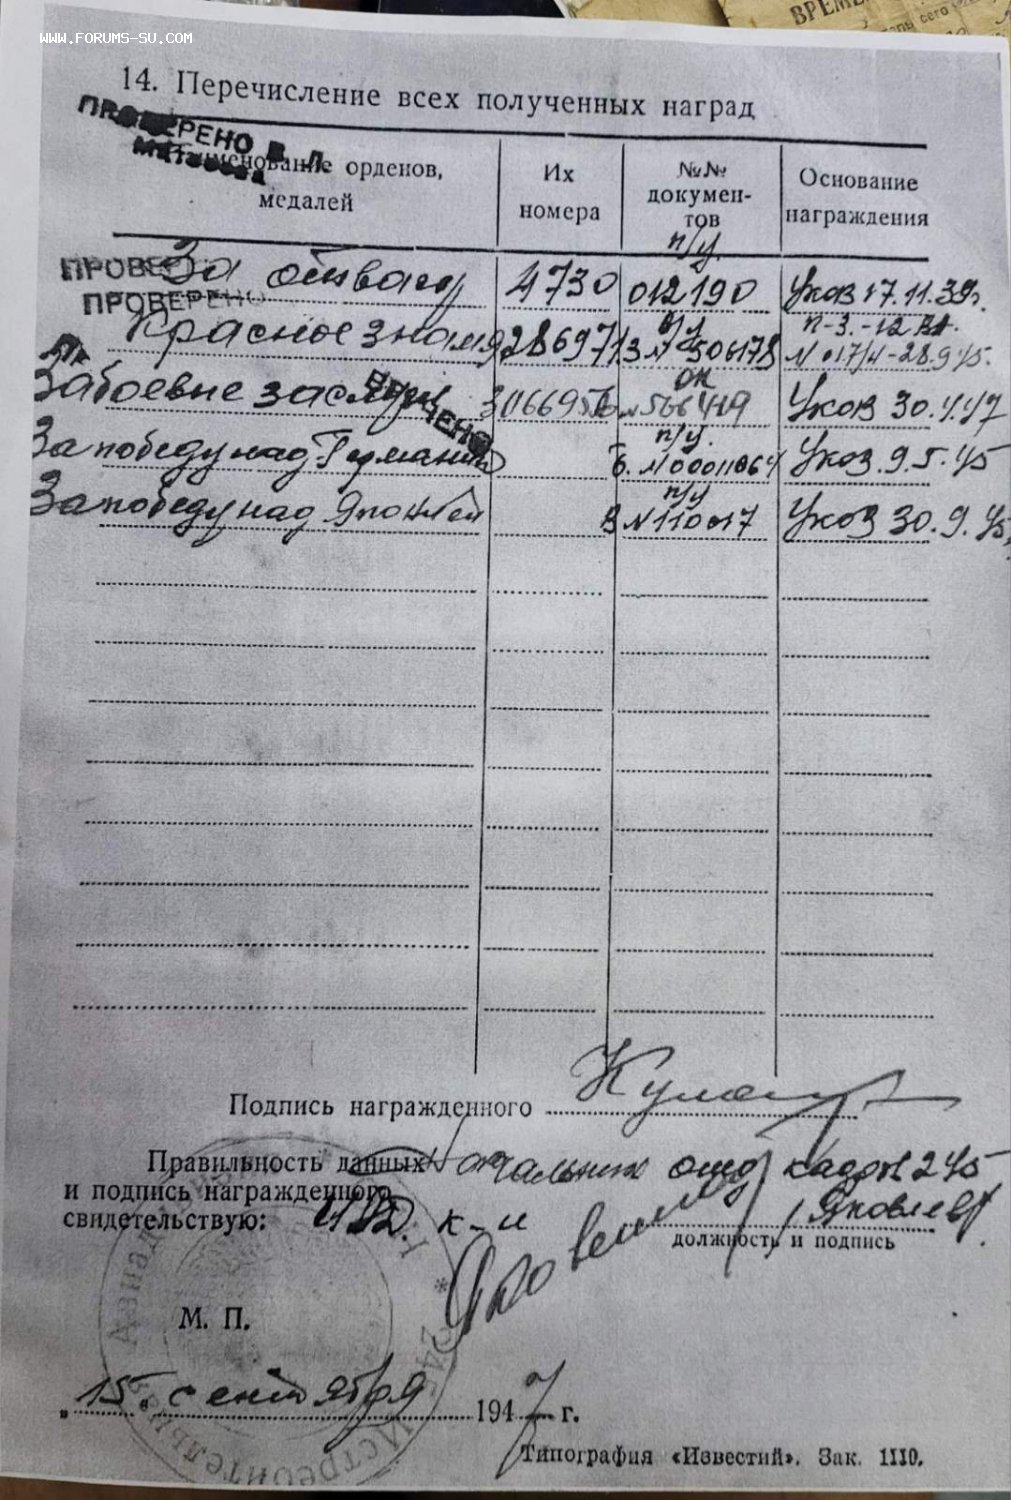 WWW.FORUMS-SU.COM
ВРЕМЕ
14. Перечисление всех полученных наград
ПРОВЕРЕНО
Наименование орденов, медалей
Их номера
№№ документов
Основание награждения
ПРОВЕРЕНО
ПРОВЕРЕНО
За отвагу 4730 п/у 012190 Указ 17.11.39г.
Красное знамя 228697 в/у 506178 п-з.-12 ВА. N 017/н-28.9.45.
За боевые заслуги ок N 566419 Указ 30.4.47
ВРУЧЕНО
За победу над Германией п/у. Указ. 9.5.45
За победу над Японией п/у В N 110017 Указ 30.9.45
Подпись награжденного
Правильность данных Начальник отд кадров 245
и подпись награжденного
свидетельствую: ИАД. к-н Яковлев
должность и подпись
Яковлев
М. П.
„15. сентября 1947 г.
Типография «Известий». Зак. 1110.